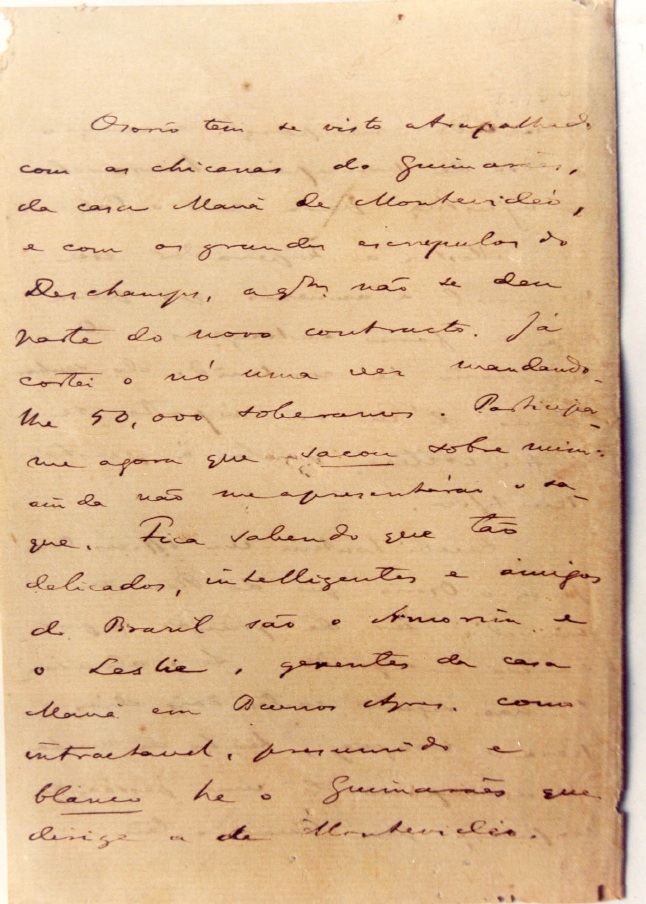 Osorio tem se visto atrapalhado
com as chicanas do Guimarães,
da casa Mauá de Montevidéo,
e com os grandes escrupulos do
Deschamps, a qm. não se deu
parte do novo contracto. Já
cortei o nó uma vez mandando-
lhe 50,000 soberanos. Participa-
me agora que sacou sobre mim:
ainda não me apresentárão o sa-
que. Fica sabendo que tão
delicados, intelligentes e amigos
do Brazil são o Amorim e
o Leslie, gerentes da casa
Mauá em Buenos Ayres, como
intractavel, presumido e
blanco he o Guimarães que
dirige a de Montevidéo.